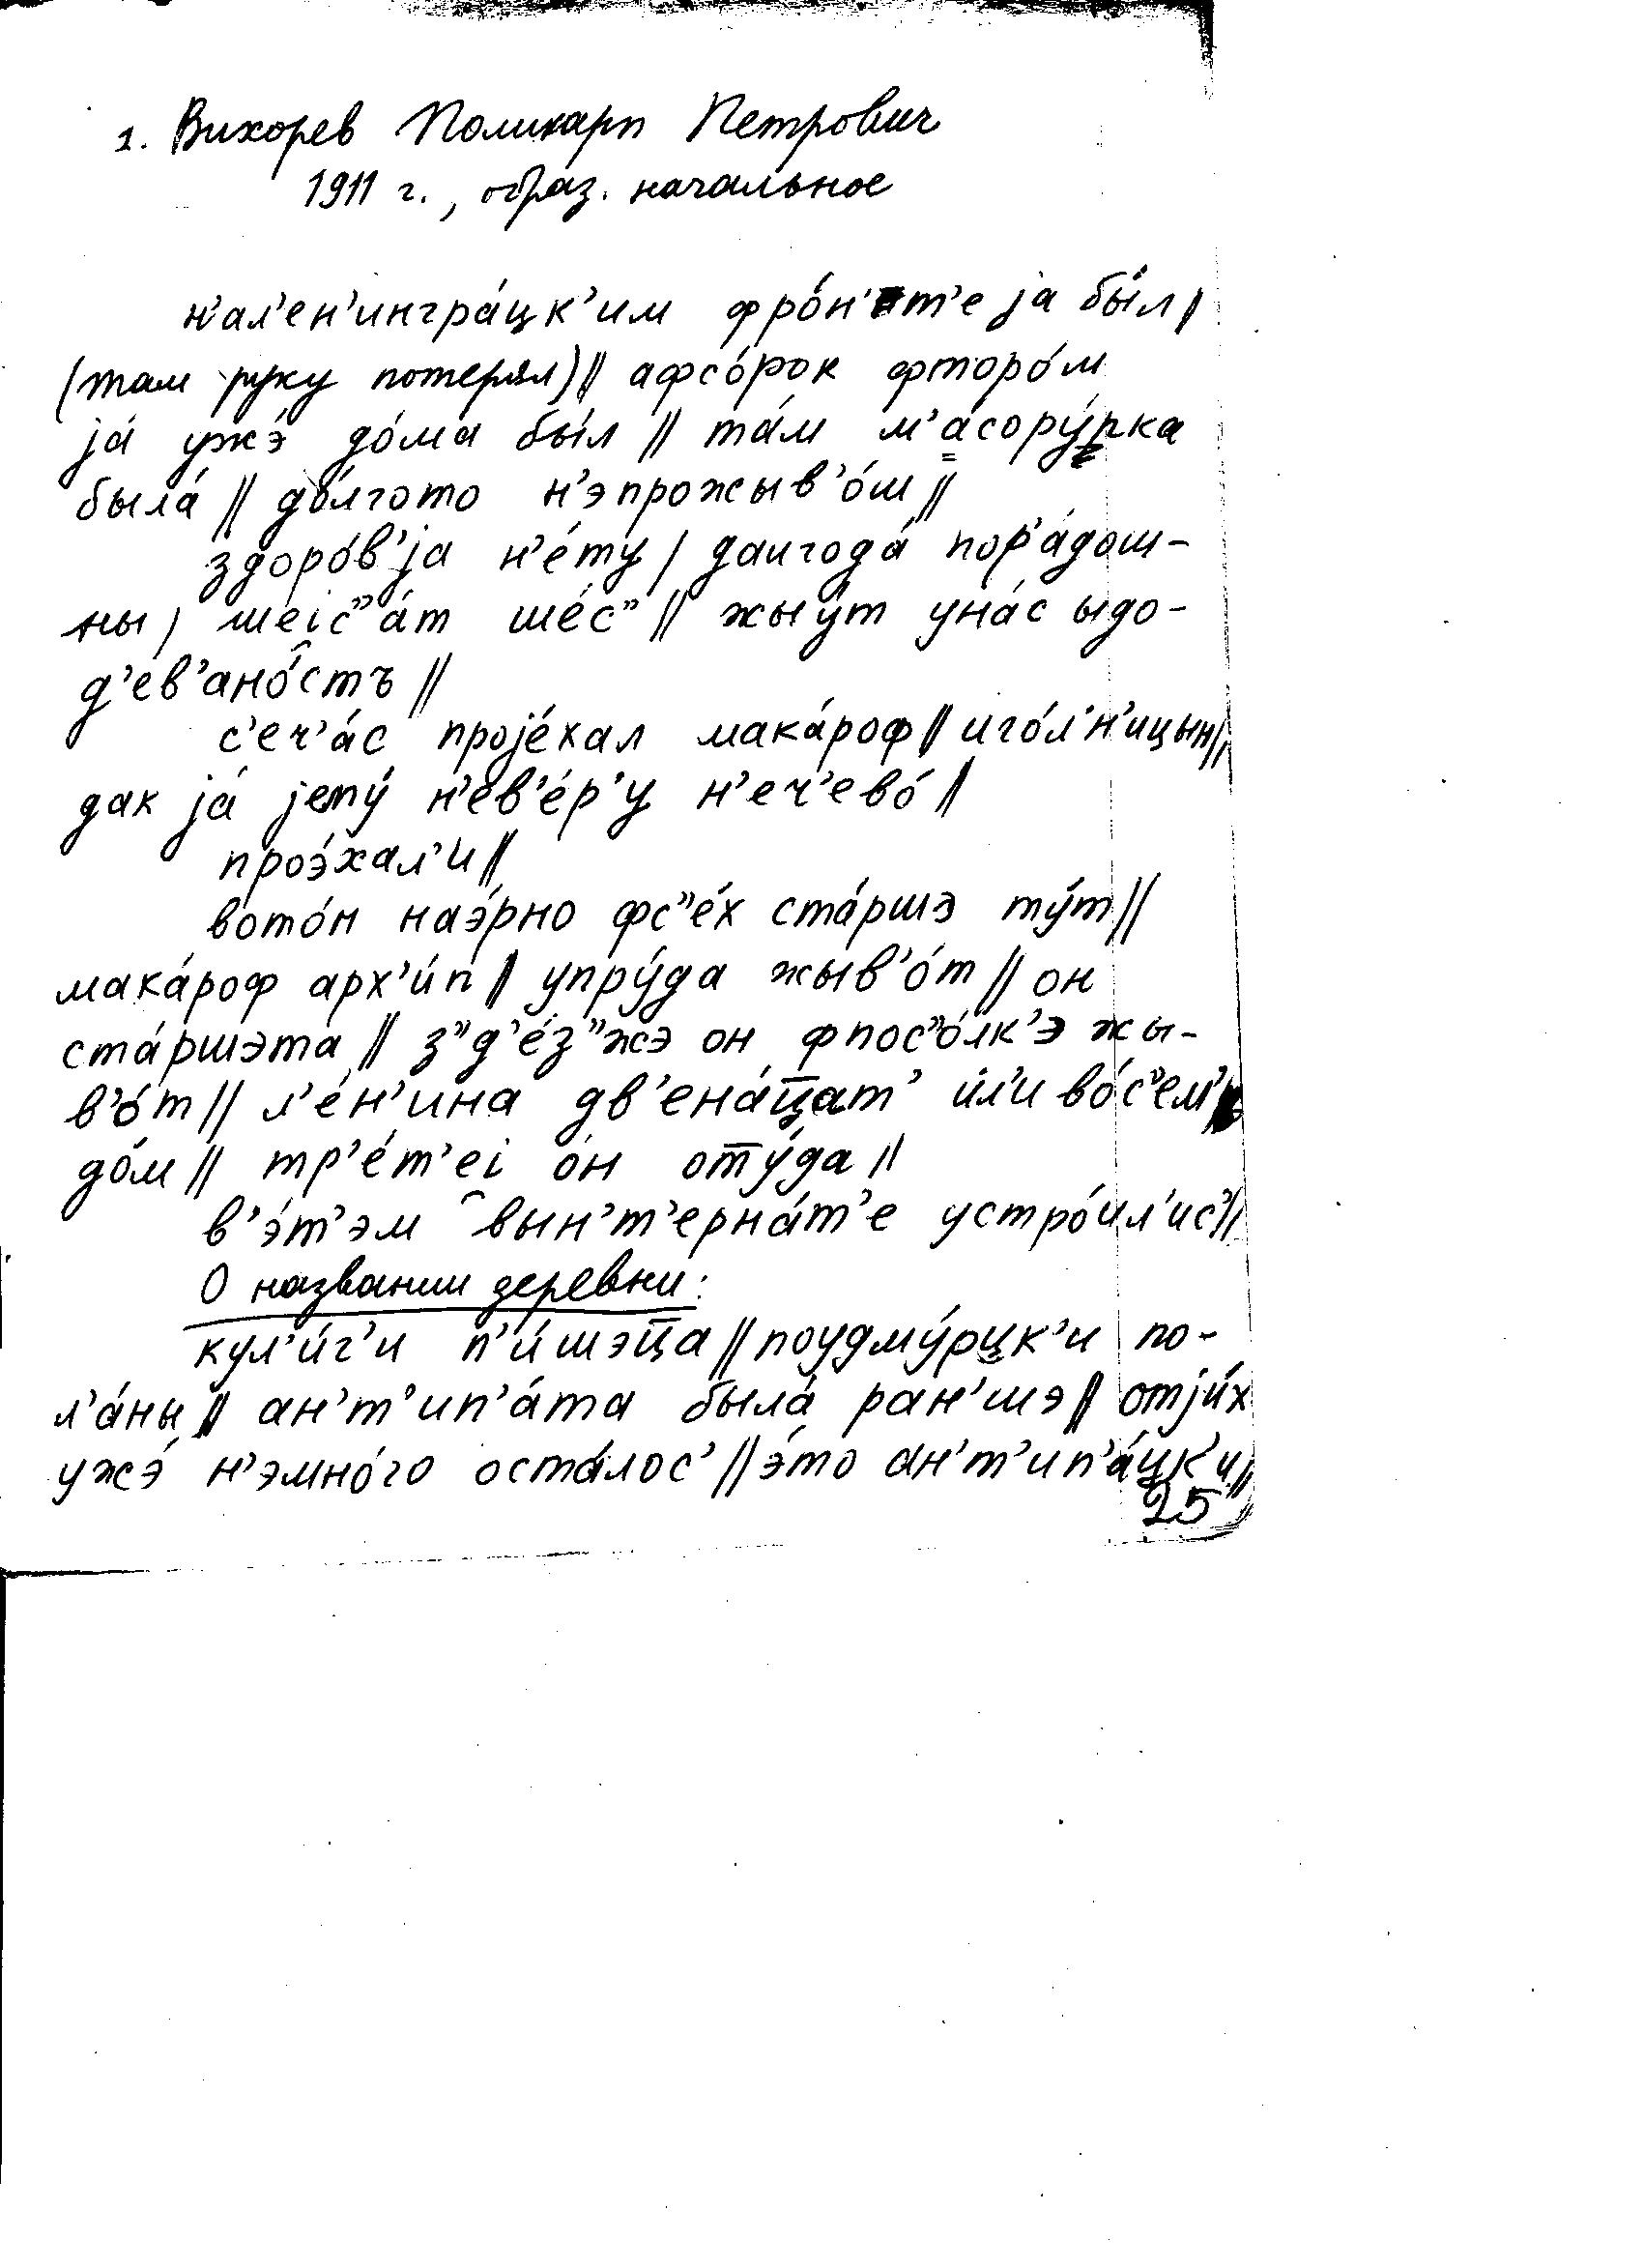 1. Вихорев Поликарп Петрович
1911 г., образ. начальное
нал'ен'ингра́цк'им фро́н'т'е ја бы́л //
(там руку потерял) // афсо́рок фторо́м
ја́ ужэ́ до́ма бы́л // та́м м'асору́пка
была́ // до́лгото н'эпрожыв'о́ш //
здоро́в'ја н'е́ту / даигода́ пор'а́дош-
ны / шеіс"а́т ше́с" // жыу́т уна́с ыдо-
д'ев'ано́стъ //
с'еч'а́с проjе́хал мака́роф // иго́л'н'ицын //
дак jа́ jему́ н'ев'е́р'у н'еч'ево́ //
проэ́хал'и //
вото́н наэ́рно фс"е́х ста́ршэ ту́т //
мака́роф арх'и́п // упру́да жыв'о́т // он
ста́ршэта // з"д'е́з"жэ он фпос"о́лк'э жы-
в'о́т // л'е́н'ина дв'ена́ц̅ат' и́л'и во́с"ем'
до́м // тр'е́т'еі о́н от̅у́да //
в'э́т'эм вын'т'ерна́т'е устро́ил'ис' //
О названии деревни:
кул'и́г'и п'и́шэц̅а // поудму́рцк'и по-
л'а́ны // ан'т'ип'а́та была́ ран'шэ // отjи́х
ужэ́ н'эмно́го оста́лос' // э́то ан'т'ип'а́цк'и //
25